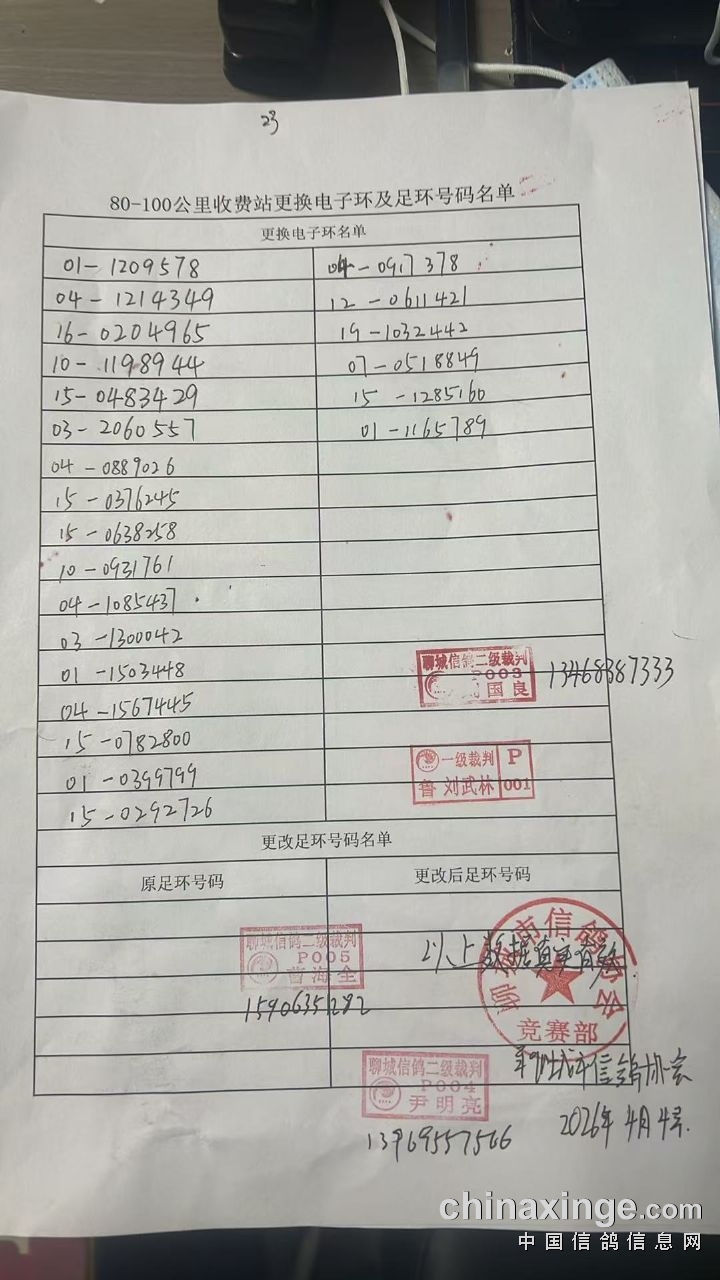 23
80-100公里收费站更换电子环及足环号码名单
更换电子环名单
01-1209578 04-0917378
04-1214349 12-0611421
16-0204965 19-1032442
10-1198944 07-0518849
15-0483429 15-1285160
03-2060557 01-1165789
04-0889026
15-0376245
15-0638258
10-0931761
04-1085437
03-1300042
01-1503448
聊城信鸽二级裁判
P003
国良
13468387333
04-1567445
15-0782800
一级裁判 P
鲁 刘武林 001
01-0399799
15-0292726
更改足环号码名单
原足环号码 更改后足环号码
聊城信鸽二级裁判
P005
曹海全
15906351282
聊城市信鸽协会
竞赛部
以上数据真实有效
聊城信鸽二级裁判
P004
尹明亮
13969557566
聊城市信鸽协会
2026年4月4号.
chinaxinge.com
中国信鸽信息网